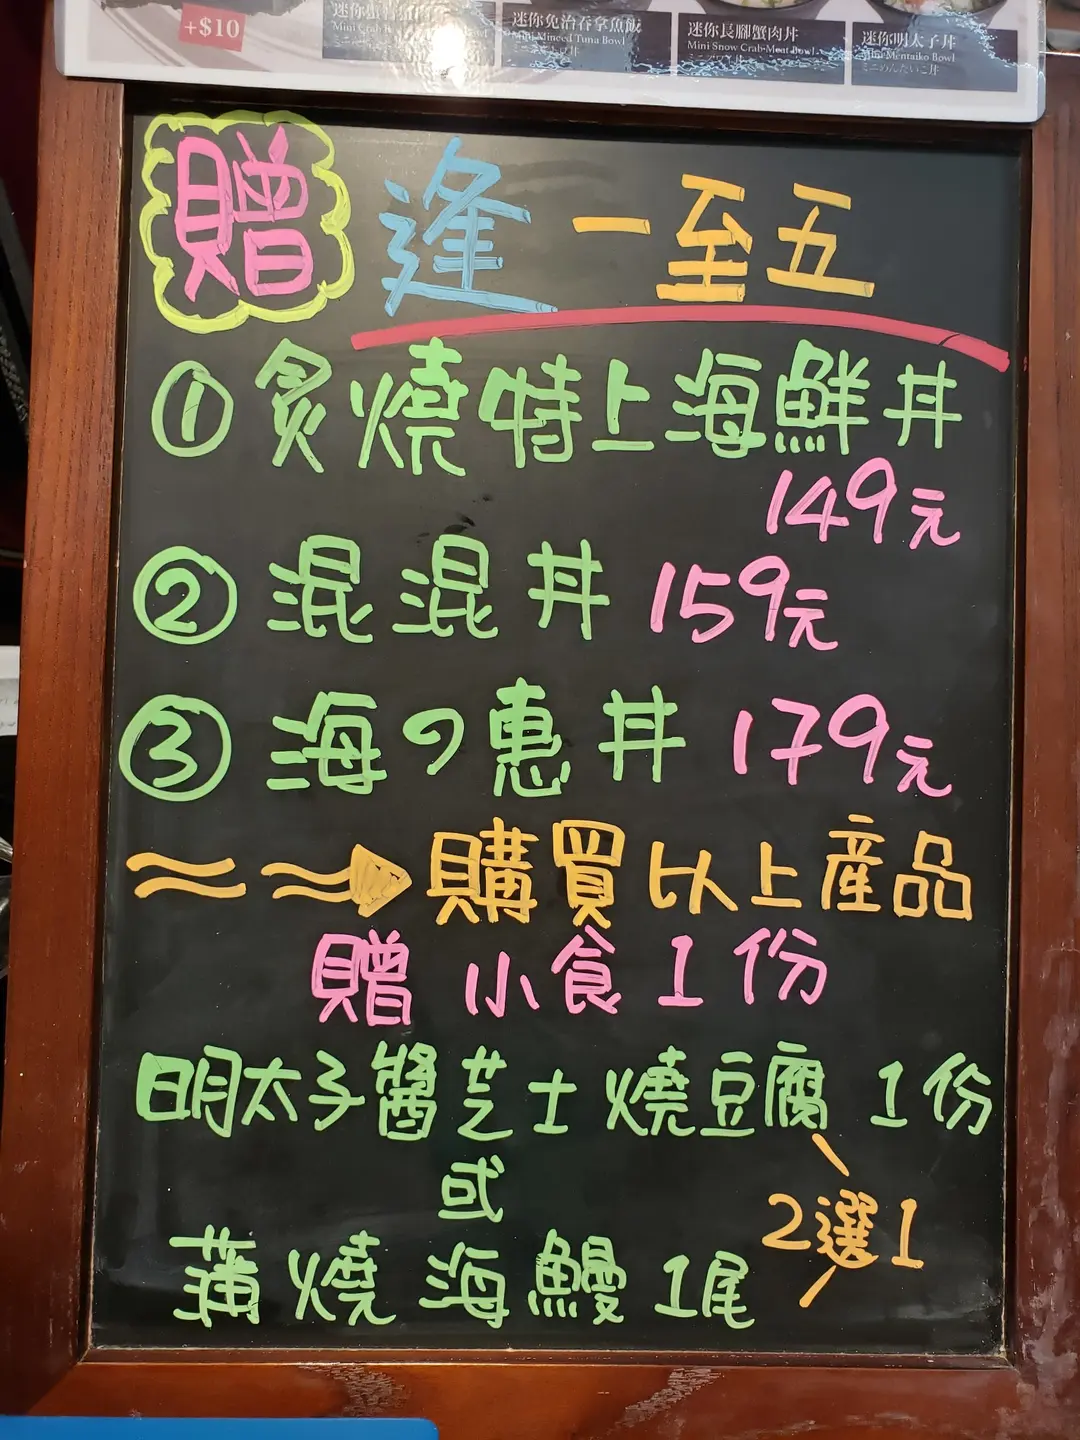 +$10
迷你免治吞拿魚飯
Mini Minced Tuna Bowl
迷你長腳蟹肉丼
Mini Snow Crab-Meat Bowl
迷你明太子丼
Mini Mentaiko Bowl
ミニめんたいこ丼
贈 逢一至五
① 炙燒特上海鮮丼
149元
② 混混丼 159元
③ 海の惠丼 179元
購買以上產品
贈 小食 1 份
明太子醬芝士燒豆腐 1份
或
2選1
蒲燒海鰻 1尾